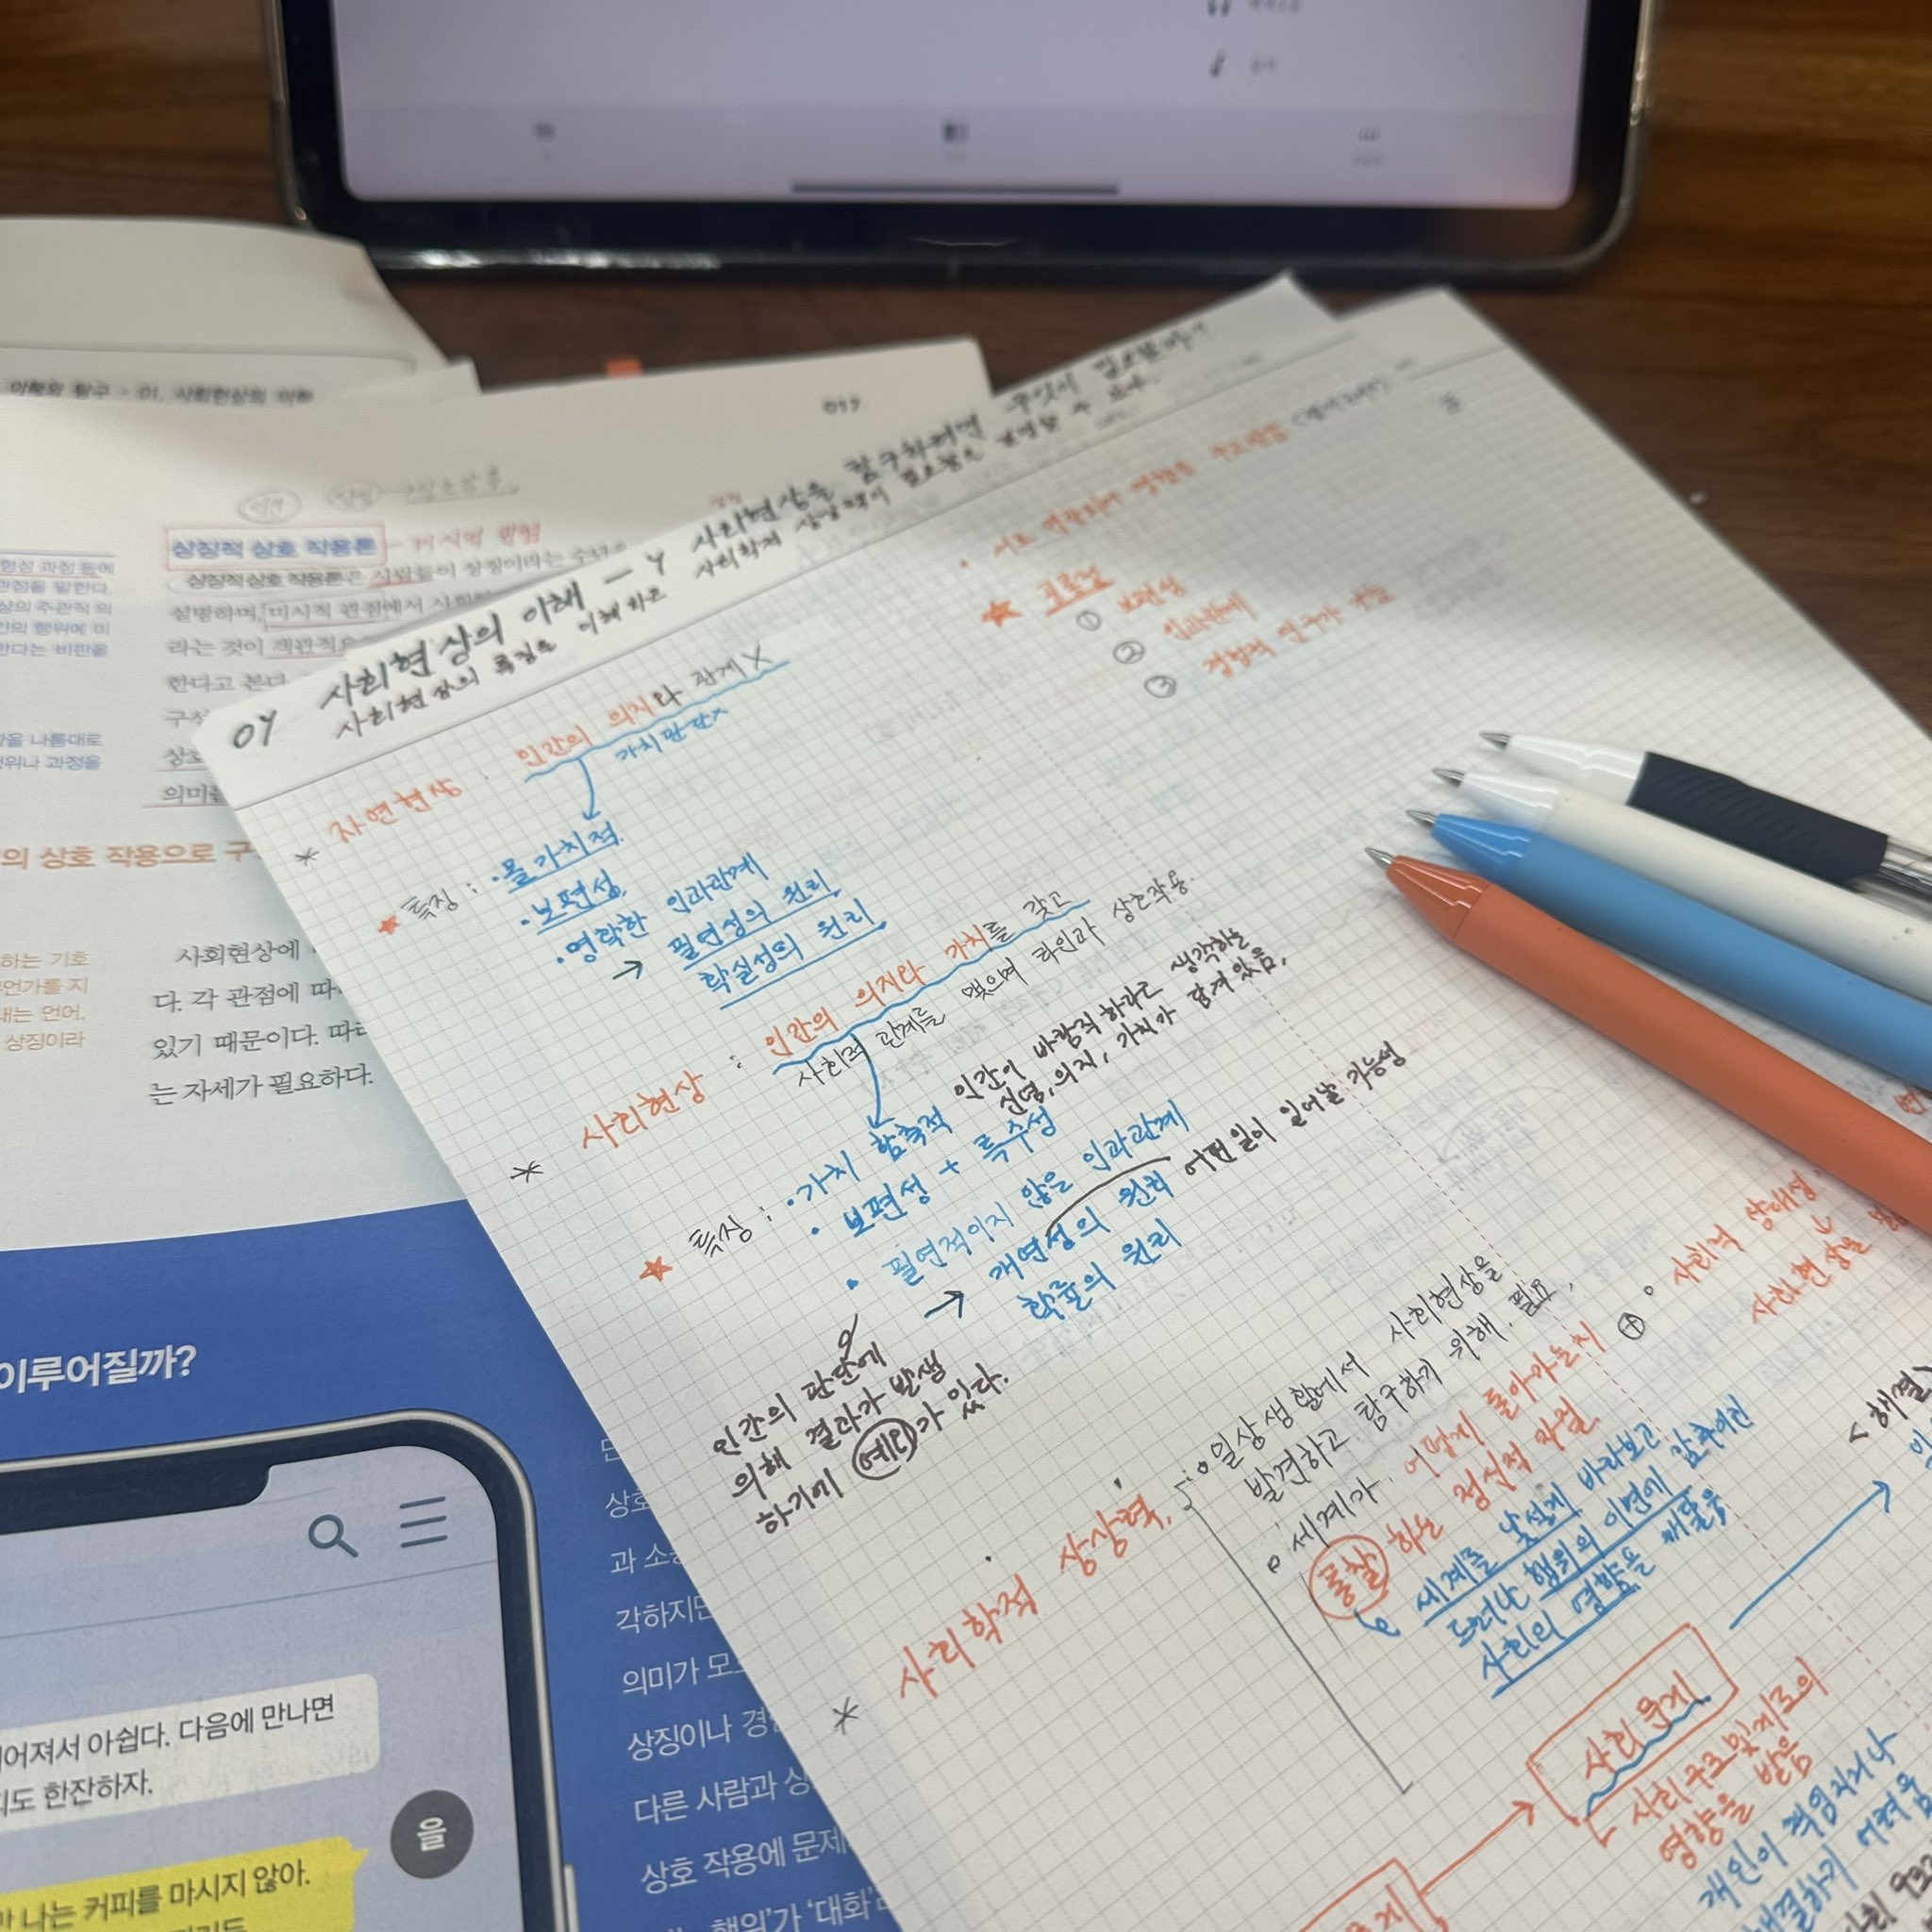 이해와 탐구 - 01. 사회현상의 이해
019
상징적 상호 작용론 - 미시적 관점
상징적 상호 작용론은 사람들이 상징이라는 수단
설명하며, 미시적 관점에서 사회
라는 것이 객관적으
한다고 본다.
구성
상호
의미를
형성 과정 등에
관점을 말한다.
상의 주관적 의
인의 행위에 미
한다는 비판을
황을 나름대로
행위나 과정을
의 상호 작용으로 구
하는 기호
무언가를 지
내는 언어,
상징이라
사회현상에
다. 각 관점에 따
있기 때문이다. 따라
는 자세가 필요하다.
이루어질까?
어져서 아쉽다. 다음에 만나면
피도 한잔하자.
을
만 나는 커피를 마시지 않아.
상호
과 소
각하지만
의미가 모
상징이나 경
다른 사람과 상
상호 작용에 문제
행위'가 '대화'
04 사회현상의 이해 - 4 사회현상을 탐구하려면 무엇이 필요할까?
사회현상의 특징을 이해하고 사회학적 상상력이 필요함을 설명할 수 있다.
* 자연현상 : 인간의 의지와 관계 X
가치판단 X
★ 특징 : · 몰가치적
· 보편성
· 명확한 인과관계
→ 필연성의 원리
확실성의 원리
* 사회현상 : 인간의 의지와 가치를 갖고
사회적 관계를 맺으며 타인과 상호작용.
★ 특징 : · 가치 함축적 인간이 바람직하다고 생각하는
신념, 의지, 가치가 담겨 있음,
· 보편성 + 특수성
· 필연적이지 않은 인과관계
→ 개연성의 원리 어떤 일이 일어날 가능성
확률의 원리
인간의 판단에
의해 결과가 발생
하기에 예외가 있다.
* 사회학적 상상력.
일상생활에서 사회현상을
발견하고 탐구하기 위해 필요.
세계가 어떻게 돌아가는지
통찰 하는 정신적 자질
세계를 낯설게 바라보고
드러난 행위의 이면에 감추어진
사회의 영향을 깨달음
사회 문제
사회구조 및 제도의
영향을 받음
개인이 책임지거나
해결하기 어려움
<해결>
⊕ 사회적 상대성
사회현상을
★ 공통점
① 보편성
② 인과관계
③ 경험적 연구가 가능